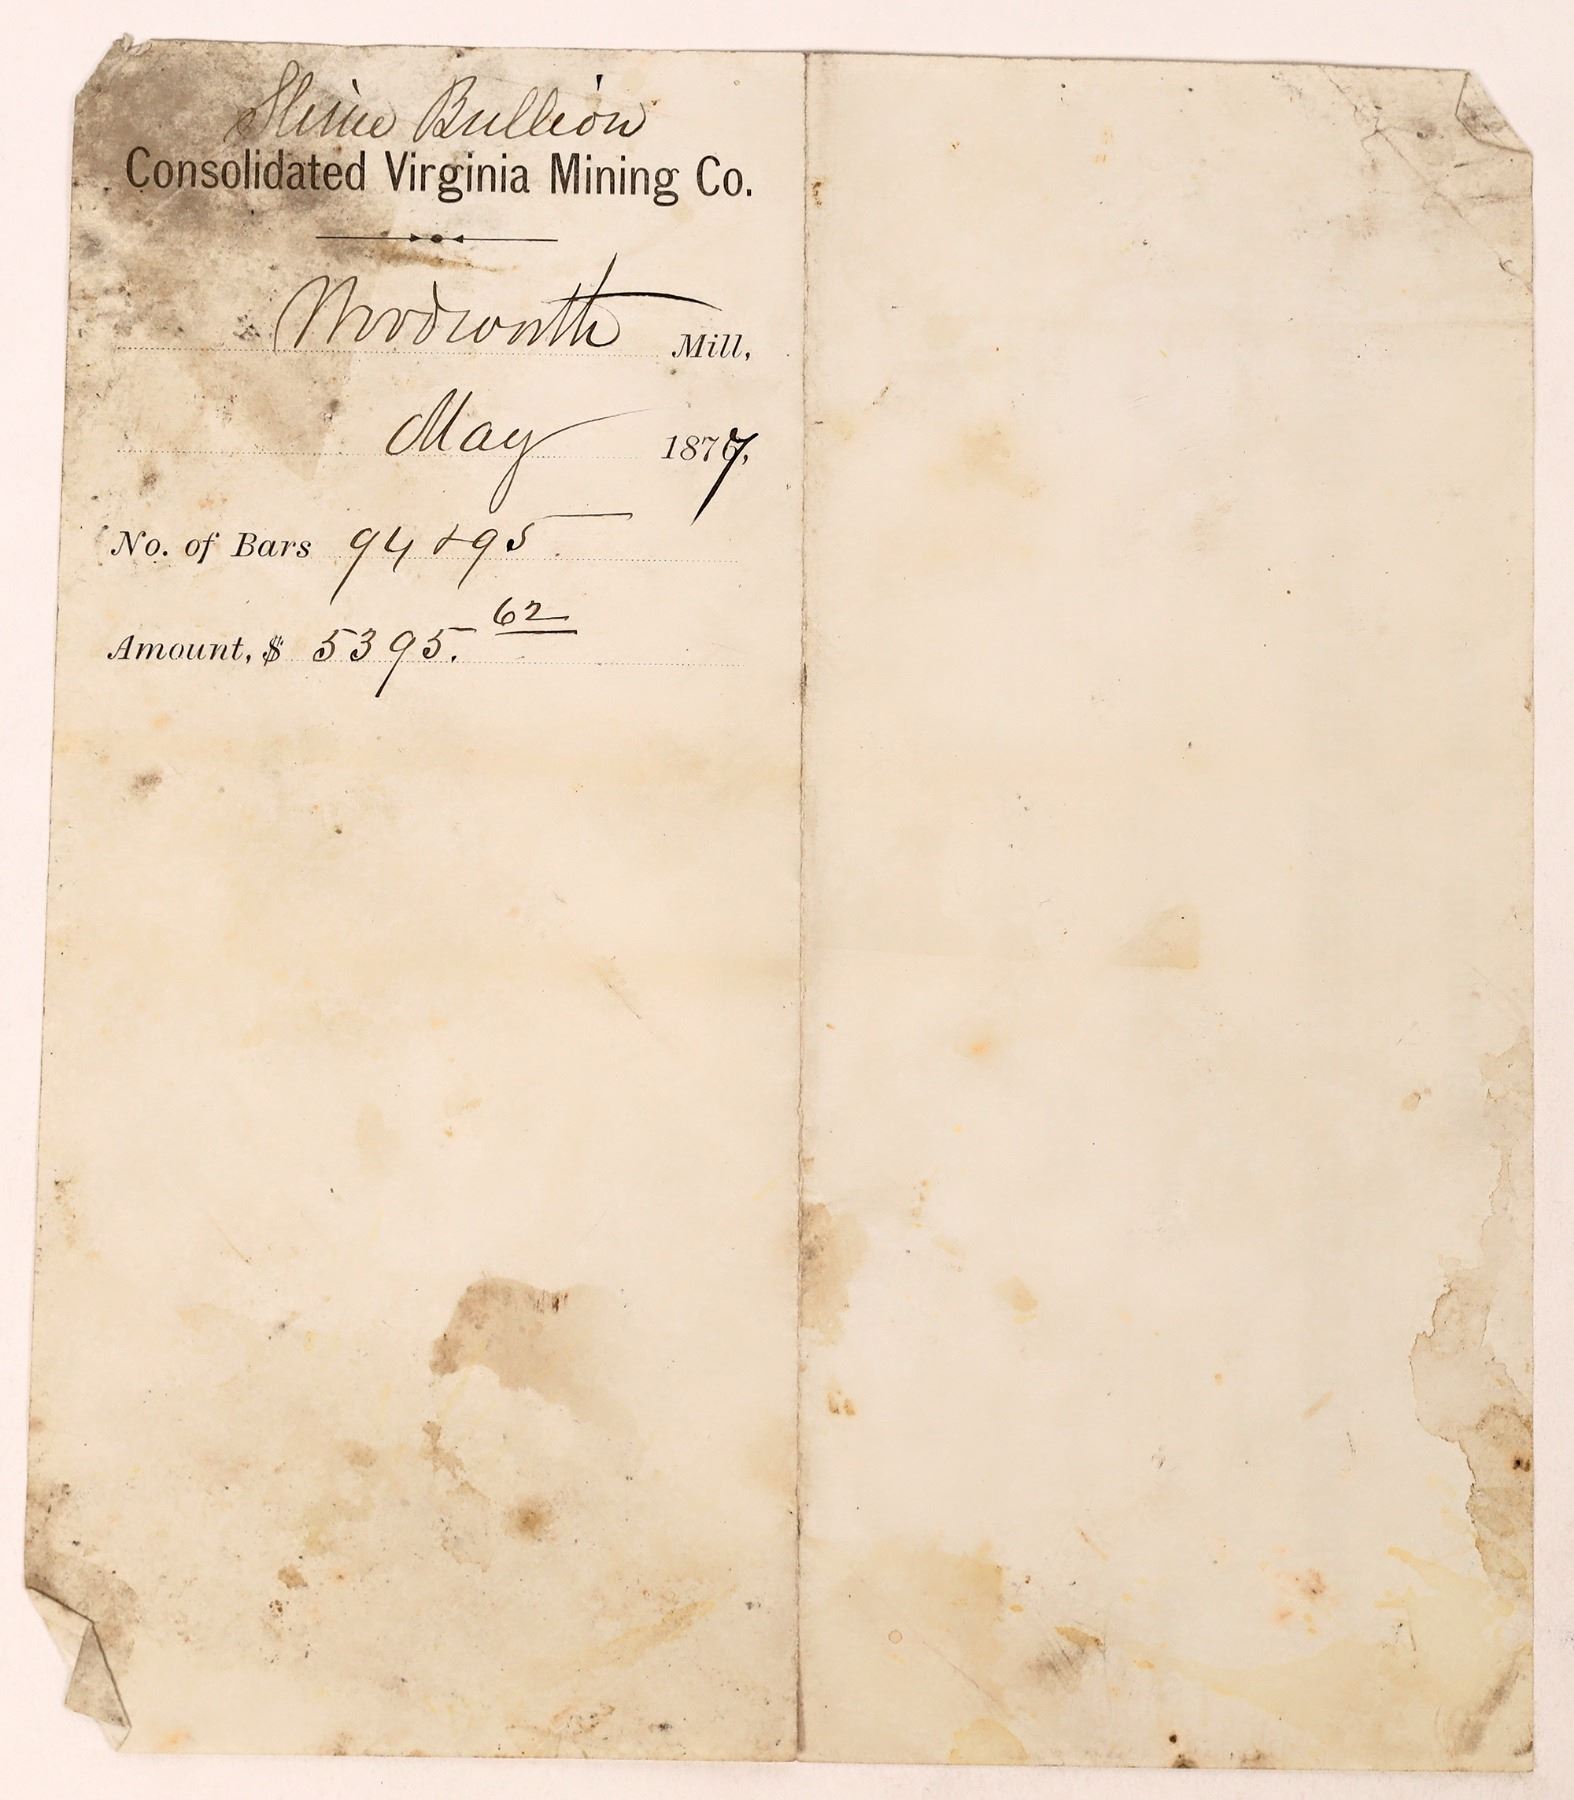 Slime Bullion
Consolidated Virginia Mining Co.
Woodworth Mill,
May 1877,
No. of Bars 94 & 95
Amount, $ 5395.62